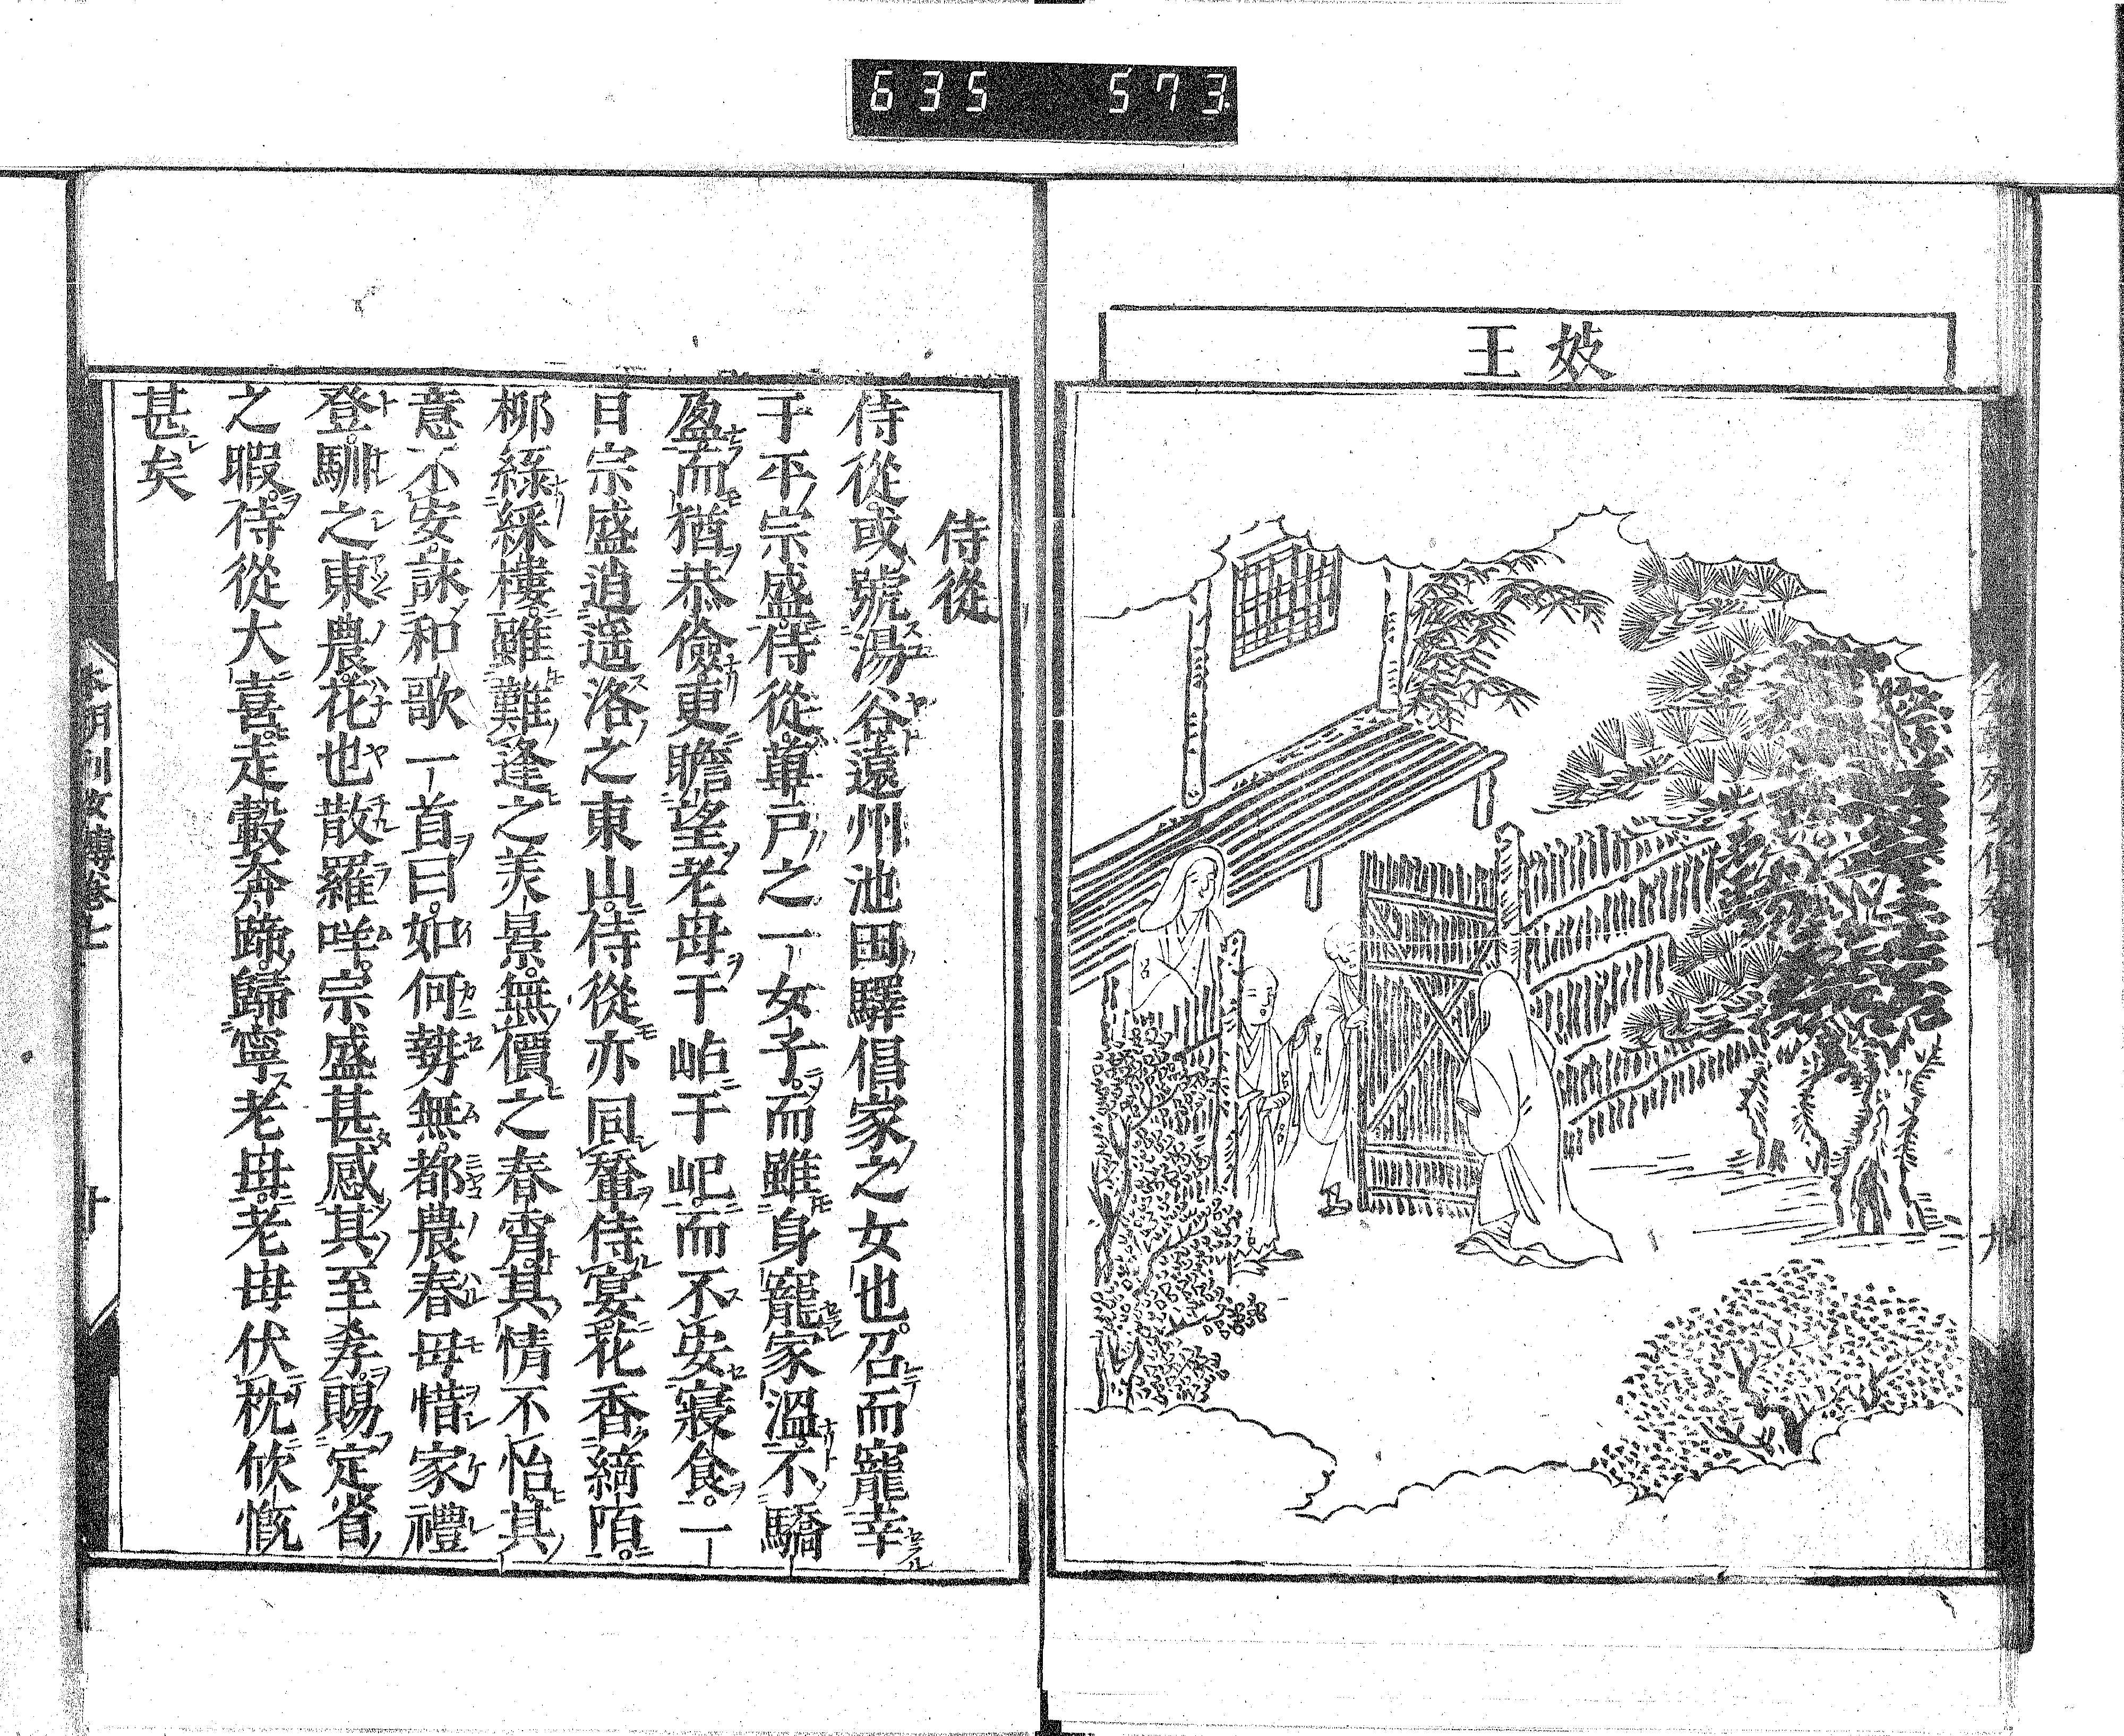 635 573
妓王
侍從
侍從或號湯谷遠州池田驛倡家之女也召而寵幸
于平宗盛侍從葦戸之一女子而雖身寵家溫不驕
盈而猶恭儉更瞻望老母于岵于屺而不安寢食一
日宗盛逍遥洛之東山侍從亦同輦侍宴花香綺陌
柳綠綵樓雖難逢之美景無價之春霄其情不怡其
意不安詠和歌一首曰如何勢無都農春毋惜家禮
登馴之東農花也散羅咩宗盛甚感其至孝賜定省
之暇侍從大喜走轂奔蹄歸寧老母老母伏枕欣慨
甚矣
本朝列女傳卷七
十
九